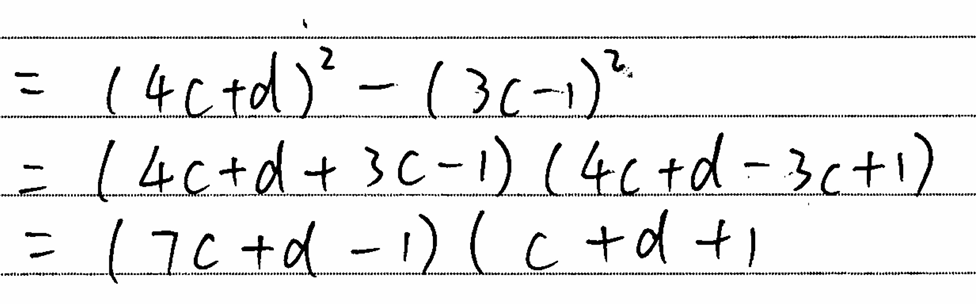 = (4c+d)² - (3c-1)²
= (4c+d+3c-1)(4c+d-3c+1)
= (7c+d-1)(c+d+1